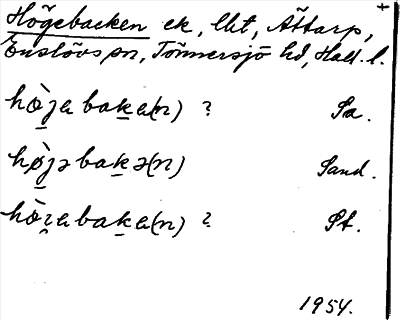 Högebacken ek, lht, Åttarp,
Enslövs sn, Tönnersjö hd, Hall. l.
hò̱jabaḵa(n) ? Sa.
hø̱̀jəbaḵə(n) Sand.
hò̱ɿabaḵa(n) ? St.
1954.